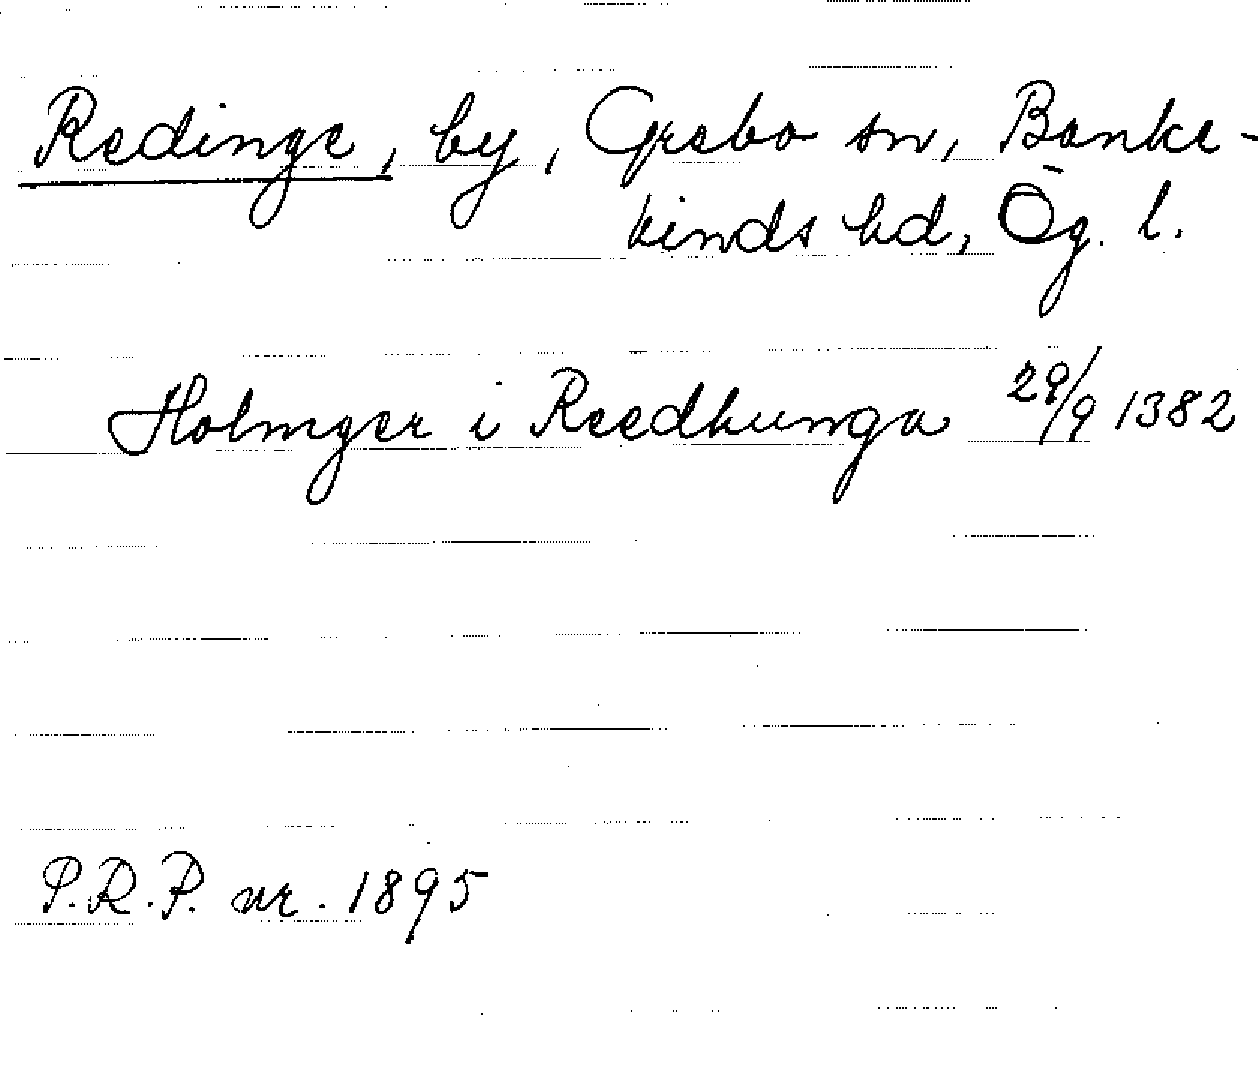 Redinge, by, Grebo sn, Banke-
kinds hd, Ög. l.
Holmger i Reedhunga 29/9 1382
P.R.P. nr. 1895